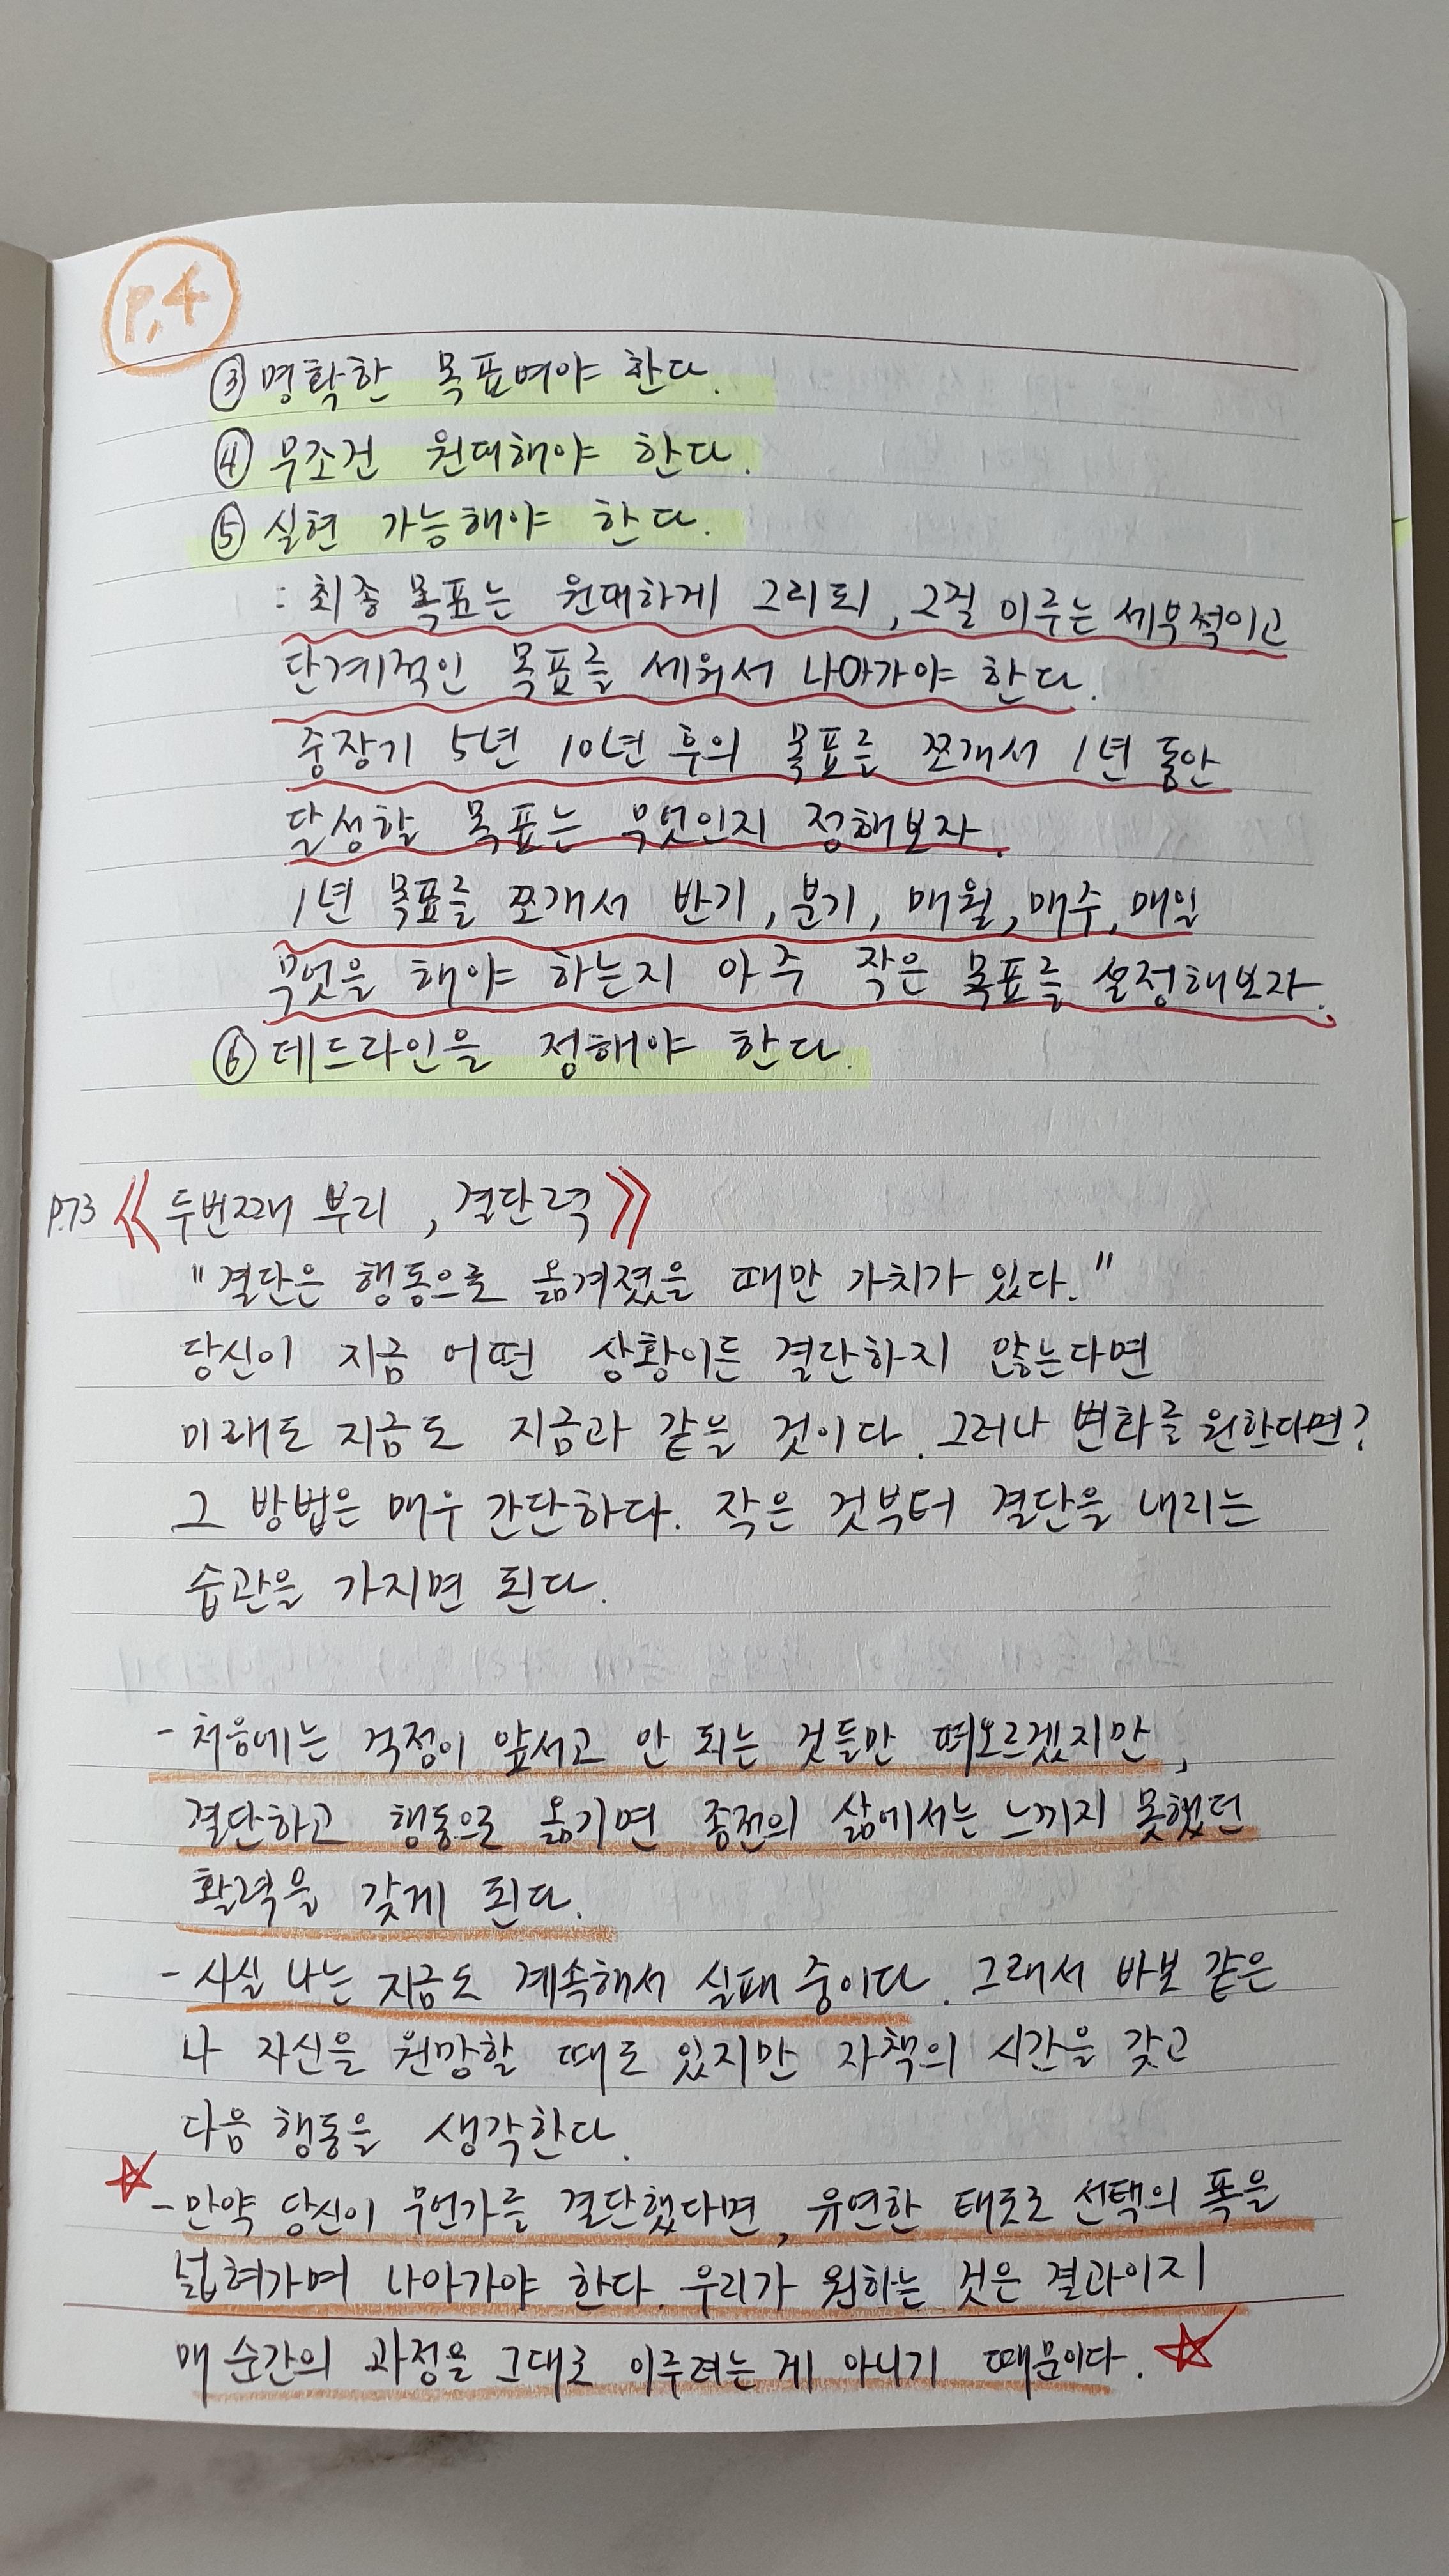 P.4
③ 명확한 목표여야 한다.
④ 무조건 원대해야 한다.
⑤ 실현 가능해야 한다.
: 최종 목표는 원대하게 그리되, 그걸 이루는 세부적이고
단계적인 목표를 세워서 나아가야 한다.
중장기 5년 10년 후의 목표를 쪼개서 1년 동안
달성할 목표는 무엇인지 정해보자.
1년 목표를 쪼개서 반기, 분기, 매월, 매주, 매일
무엇을 해야 하는지 아주 작은 목표를 설정해보자.
⑥ 데드라인을 정해야 한다.
P.73 《 두번째 부리, 결단력 》
"결단은 행동으로 옮겨졌을 때만 가치가 있다."
당신이 지금 어떤 상황이든 결단하지 않는다면
미래도 지금도 지금과 같을 것이다. 그러나 변화를 원한다면?
그 방법은 매우 간단하다. 작은 것부터 결단을 내리는
습관을 가지면 된다.
- 처음에는 걱정이 앞서고 안 되는 것들만 떠오르겠지만,
결단하고 행동으로 옮기면 종전의 삶에서는 느끼지 못했던
활력을 갖게 된다.
- 사실 나는 지금도 계속해서 실패 중이다. 그래서 바보 같은
나 자신을 원망할 때도 있지만 자책의 시간을 갖고
다음 행동을 생각한다.
☆ - 만약 당신이 무언가를 결단했다면, 유연한 태도로 선택의 폭을
넓혀가며 나아가야 한다. 우리가 원하는 것은 결과이지
매 순간의 과정을 그대로 이루려는 게 아니기 때문이다. ☆